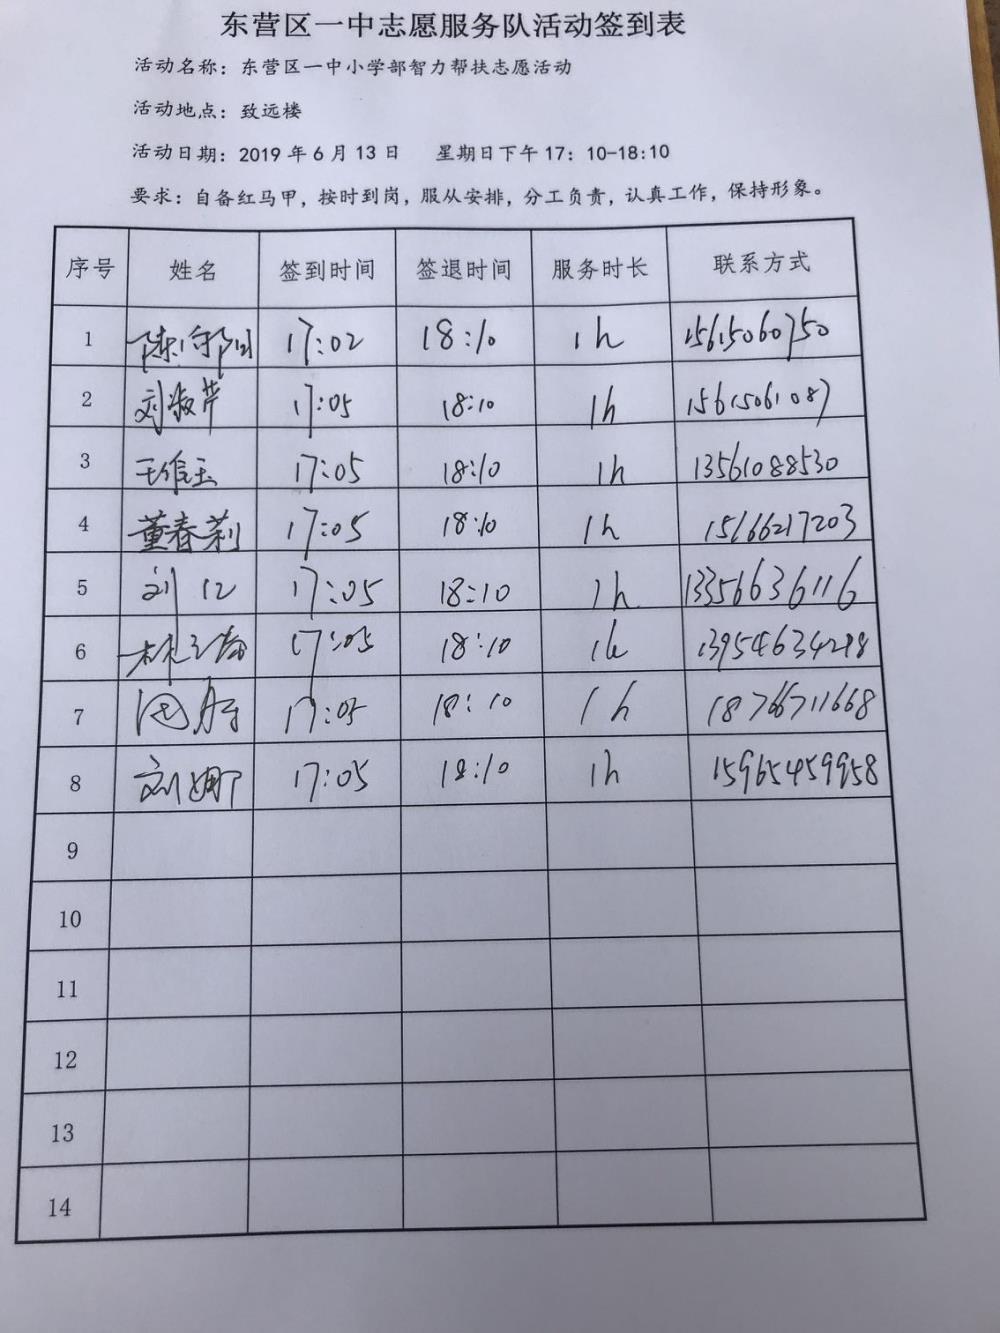 东营区一中志愿服务队活动签到表
活动名称：东营区一中小学部智力帮扶志愿活动
活动地点：致远楼
活动日期：2019 年 6 月 13 日 星期日下午 17：10-18:10
要求：自备红马甲，按时到岗，服从安排，分工负责，认真工作，保持形象。
序号 姓名 签到时间 签退时间 服务时长 联系方式
1 17:02 18:10 1h 15615060750
2 刘淑芹 17:05 18:10 1h 15615061087
3 17:05 18:10 1h 13561088530
4 董春莉 17:05 18:10 1h 15166217203
5 刘 17:05 18:10 1h 13356636116
6 17:05 18:10 1h 13954634298
7 17:05 18:10 1h 18766711668
8 刘娜 17:05 18:10 1h 15965459958
9
10
11
12
13
14